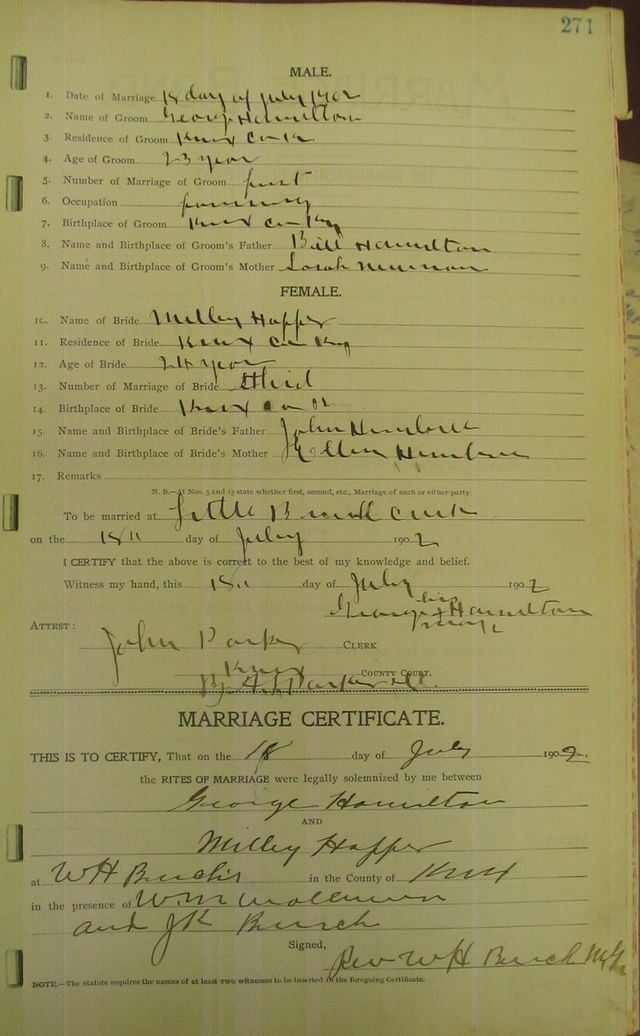 271
MALE.
1. Date of Marriage 18 day of July 1902
2. Name of Groom George Hamilton
3. Residence of Groom Knox
4. Age of Groom 23 year
5. Number of Marriage of Groom first
6. Occupation farming
7. Birthplace of Groom Knox co Ky
8. Name and Birthplace of Groom's Father Bill Hamilton
9. Name and Birthplace of Groom's Mother Sarah
FEMALE.
10. Name of Bride Milley Hopper
11. Residence of Bride Knox Co Ky
12. Age of Bride 24 year
13. Number of Marriage of Bride third
14. Birthplace of Bride Knox
15. Name and Birthplace of Bride's Father John
16. Name and Birthplace of Bride's Mother Ellen
17. Remarks
N. B.—At Nos. 5 and 13 state whether first, second, etc., Marriage of each or either party.
To be married at Little
on the 18 day of July 1902
I CERTIFY that the above is correct to the best of my knowledge and belief.
Witness my hand, this 18 day of July 1902
his
George x Hamilton
mark
ATTEST:
John Parker CLERK
Knox COUNTY COURT.
By Parker
MARRIAGE CERTIFICATE.
THIS IS TO CERTIFY, That on the 18 day of July 1902.
the RITES OF MARRIAGE were legally solemnized by me between
George Hamilton
AND
Milley Hopper
at W H in the County of Knox
in the presence of W. M.
and J K Burch
Signed,
Rev W H Burch
NOTE.—The Statute requires the names of at least two witnesses to be inserted in the foregoing Certificate.